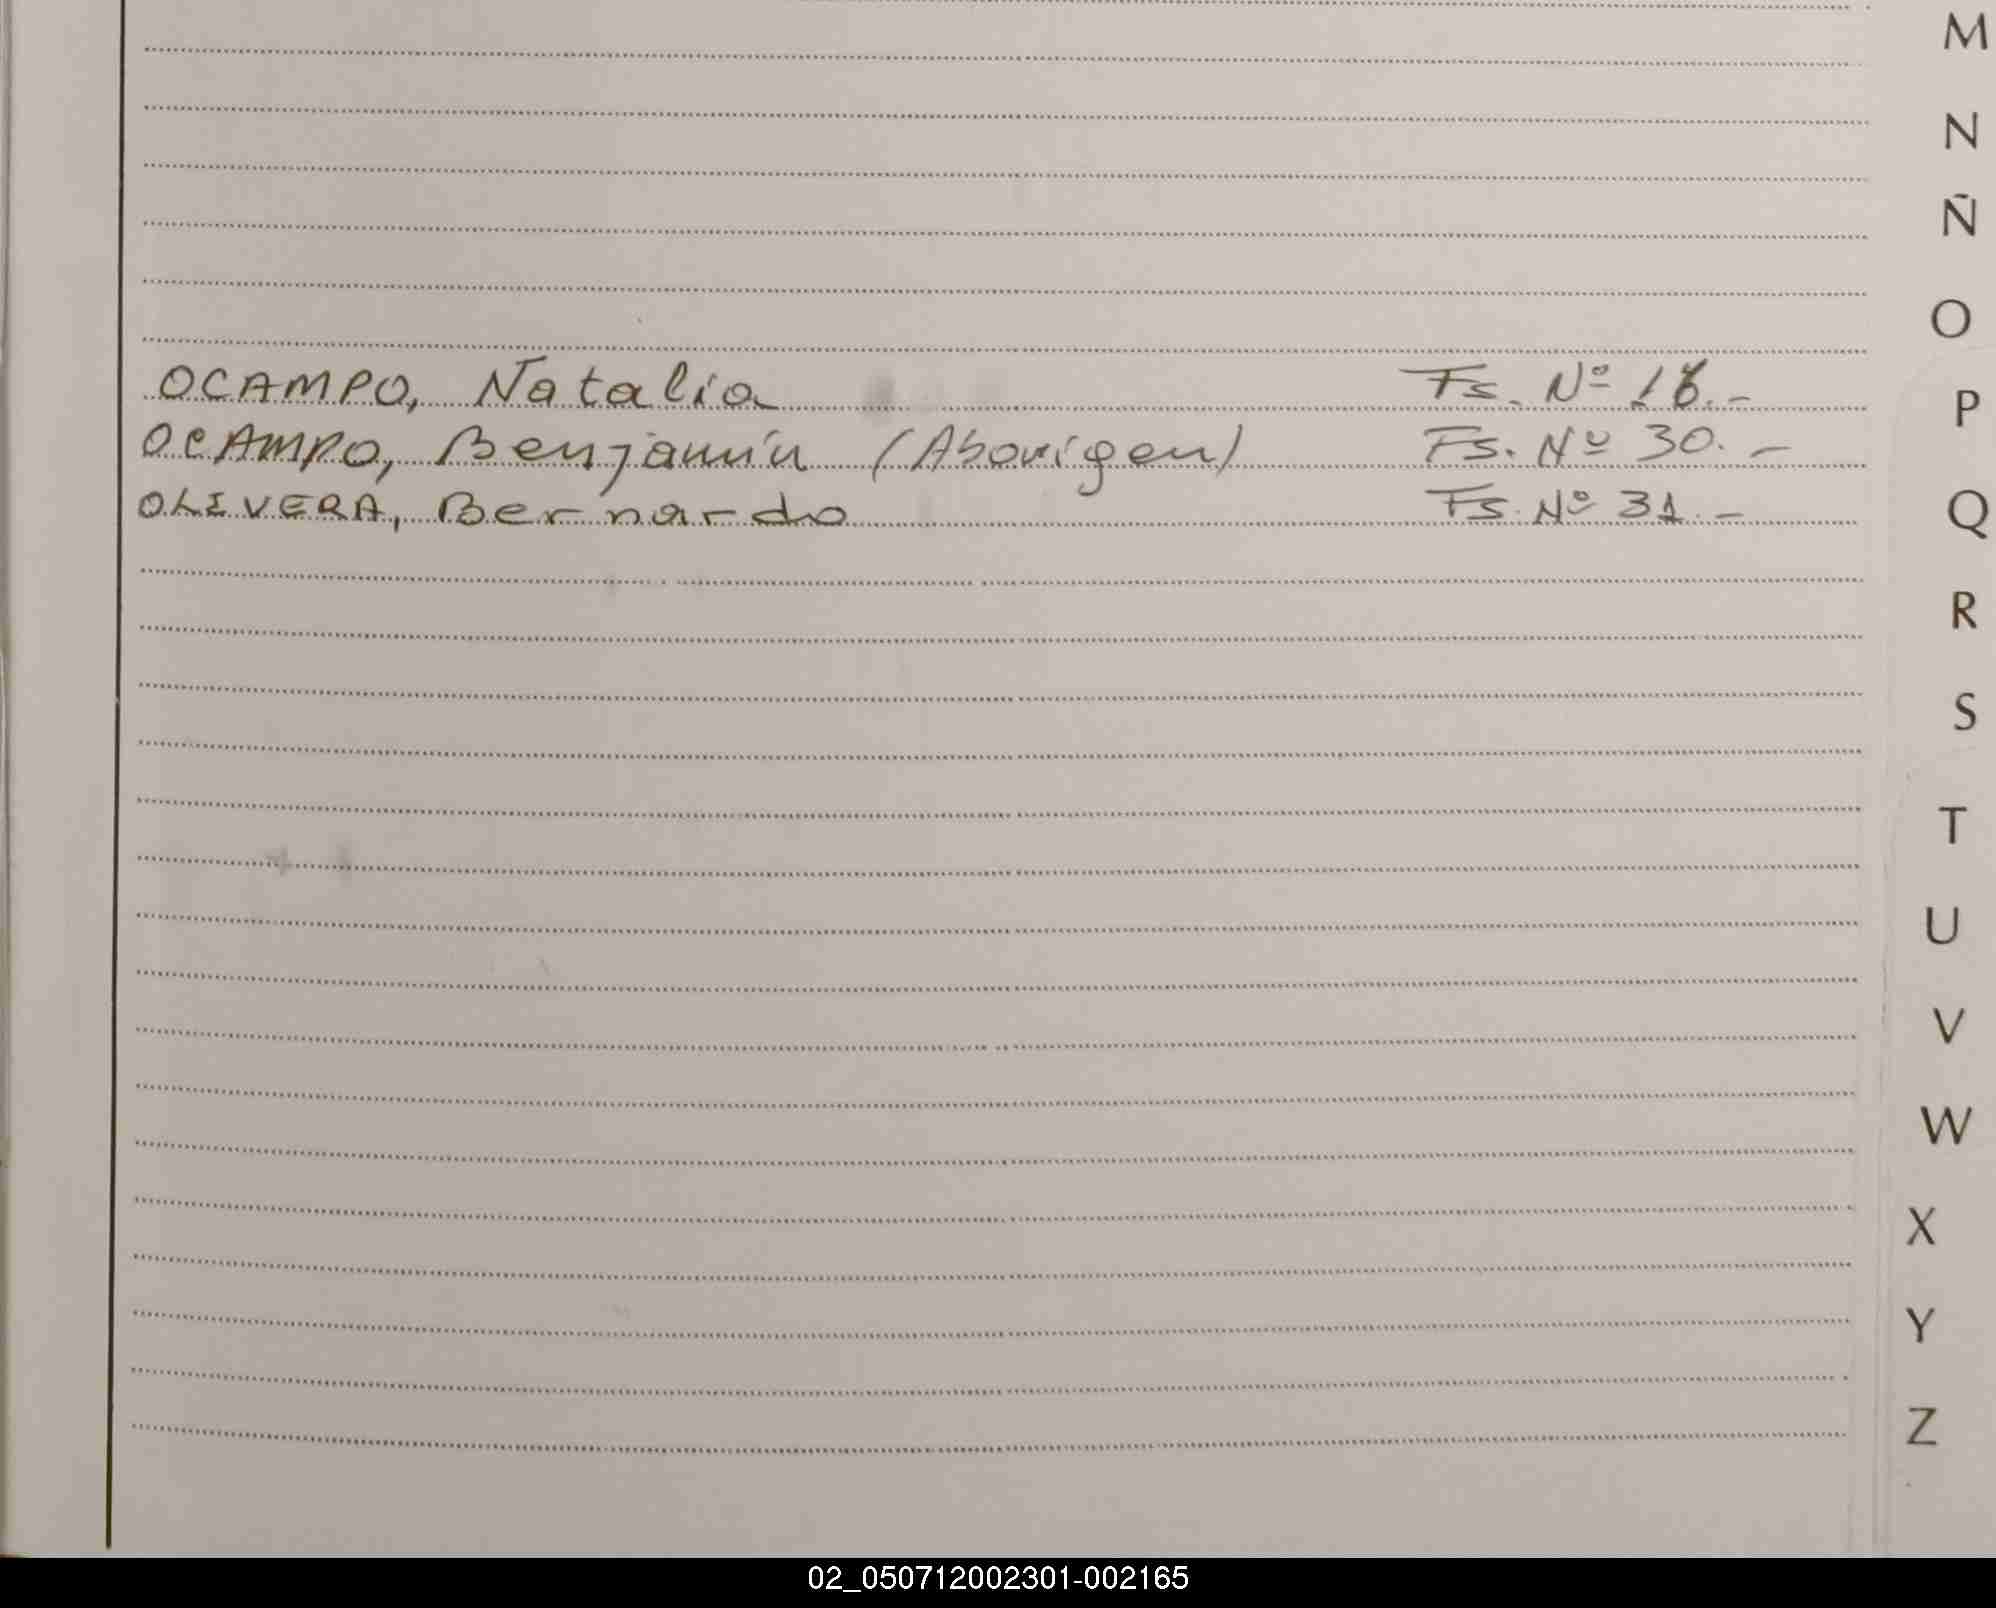 M
N
Ñ
O
OCAMPO, Natalia Fs. Nº 18.-
P
OCAMPO, Benjamín (Aborigen) Fs. Nº 30.-
OLIVERA, Bernardo Fs. Nº 31.-
Q
R
S
T
U
V
W
X
Y
Z
02_050712002301-002165